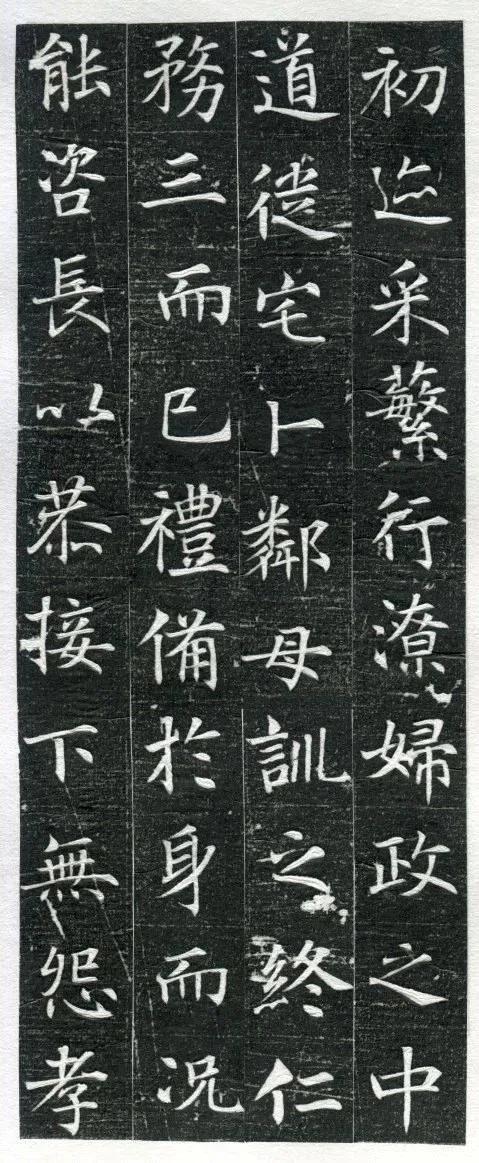 初迹采蘩行潦婦政之中
道徙宅卜鄰母訓之終仁
務三而已禮備於身而况
能咨長以恭接下無怨孝